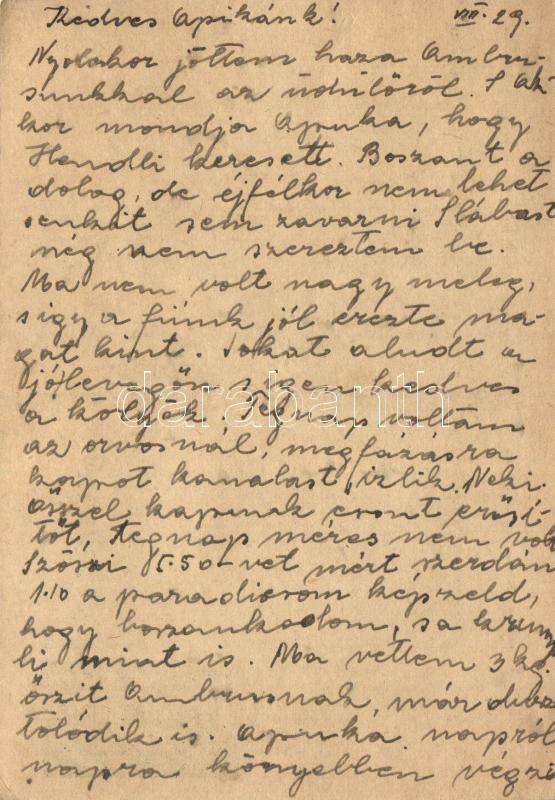 Kedves Apikánk! VIII. 29.
Nyolckor jöttem haza Ambru-
sunkkal az üdülőről. S ak-
kor mondja Apuka, hogy
Hendli keresett. Boszant a
dolog, de éjfélkor nem lehet
senkit sem zavarni Slábast
még nem szereztem be.
Ma nem volt nagy meleg,
s igy a fiúnk jól érezte ma-
gát kint. Sokat aludt a
jó levegőn s igen kedves
a kölyök. Tegnap voltam
az orvosnál, megfázásra
kapot kanalast, izlik Neki.
Ősszel kapunk csont erősí-
tőt, tegnap méres nem volt
Szőrszi 5.50-vet mért szerdán
1.10 a paradicsom képzeld,
hogy boszankodom, s a krump
li miat is. Ma vettem 3 kg.
őszit Ambrusnak, már dobz
tolódik is. Apuka napról
napra könyebben végzi
darabanth